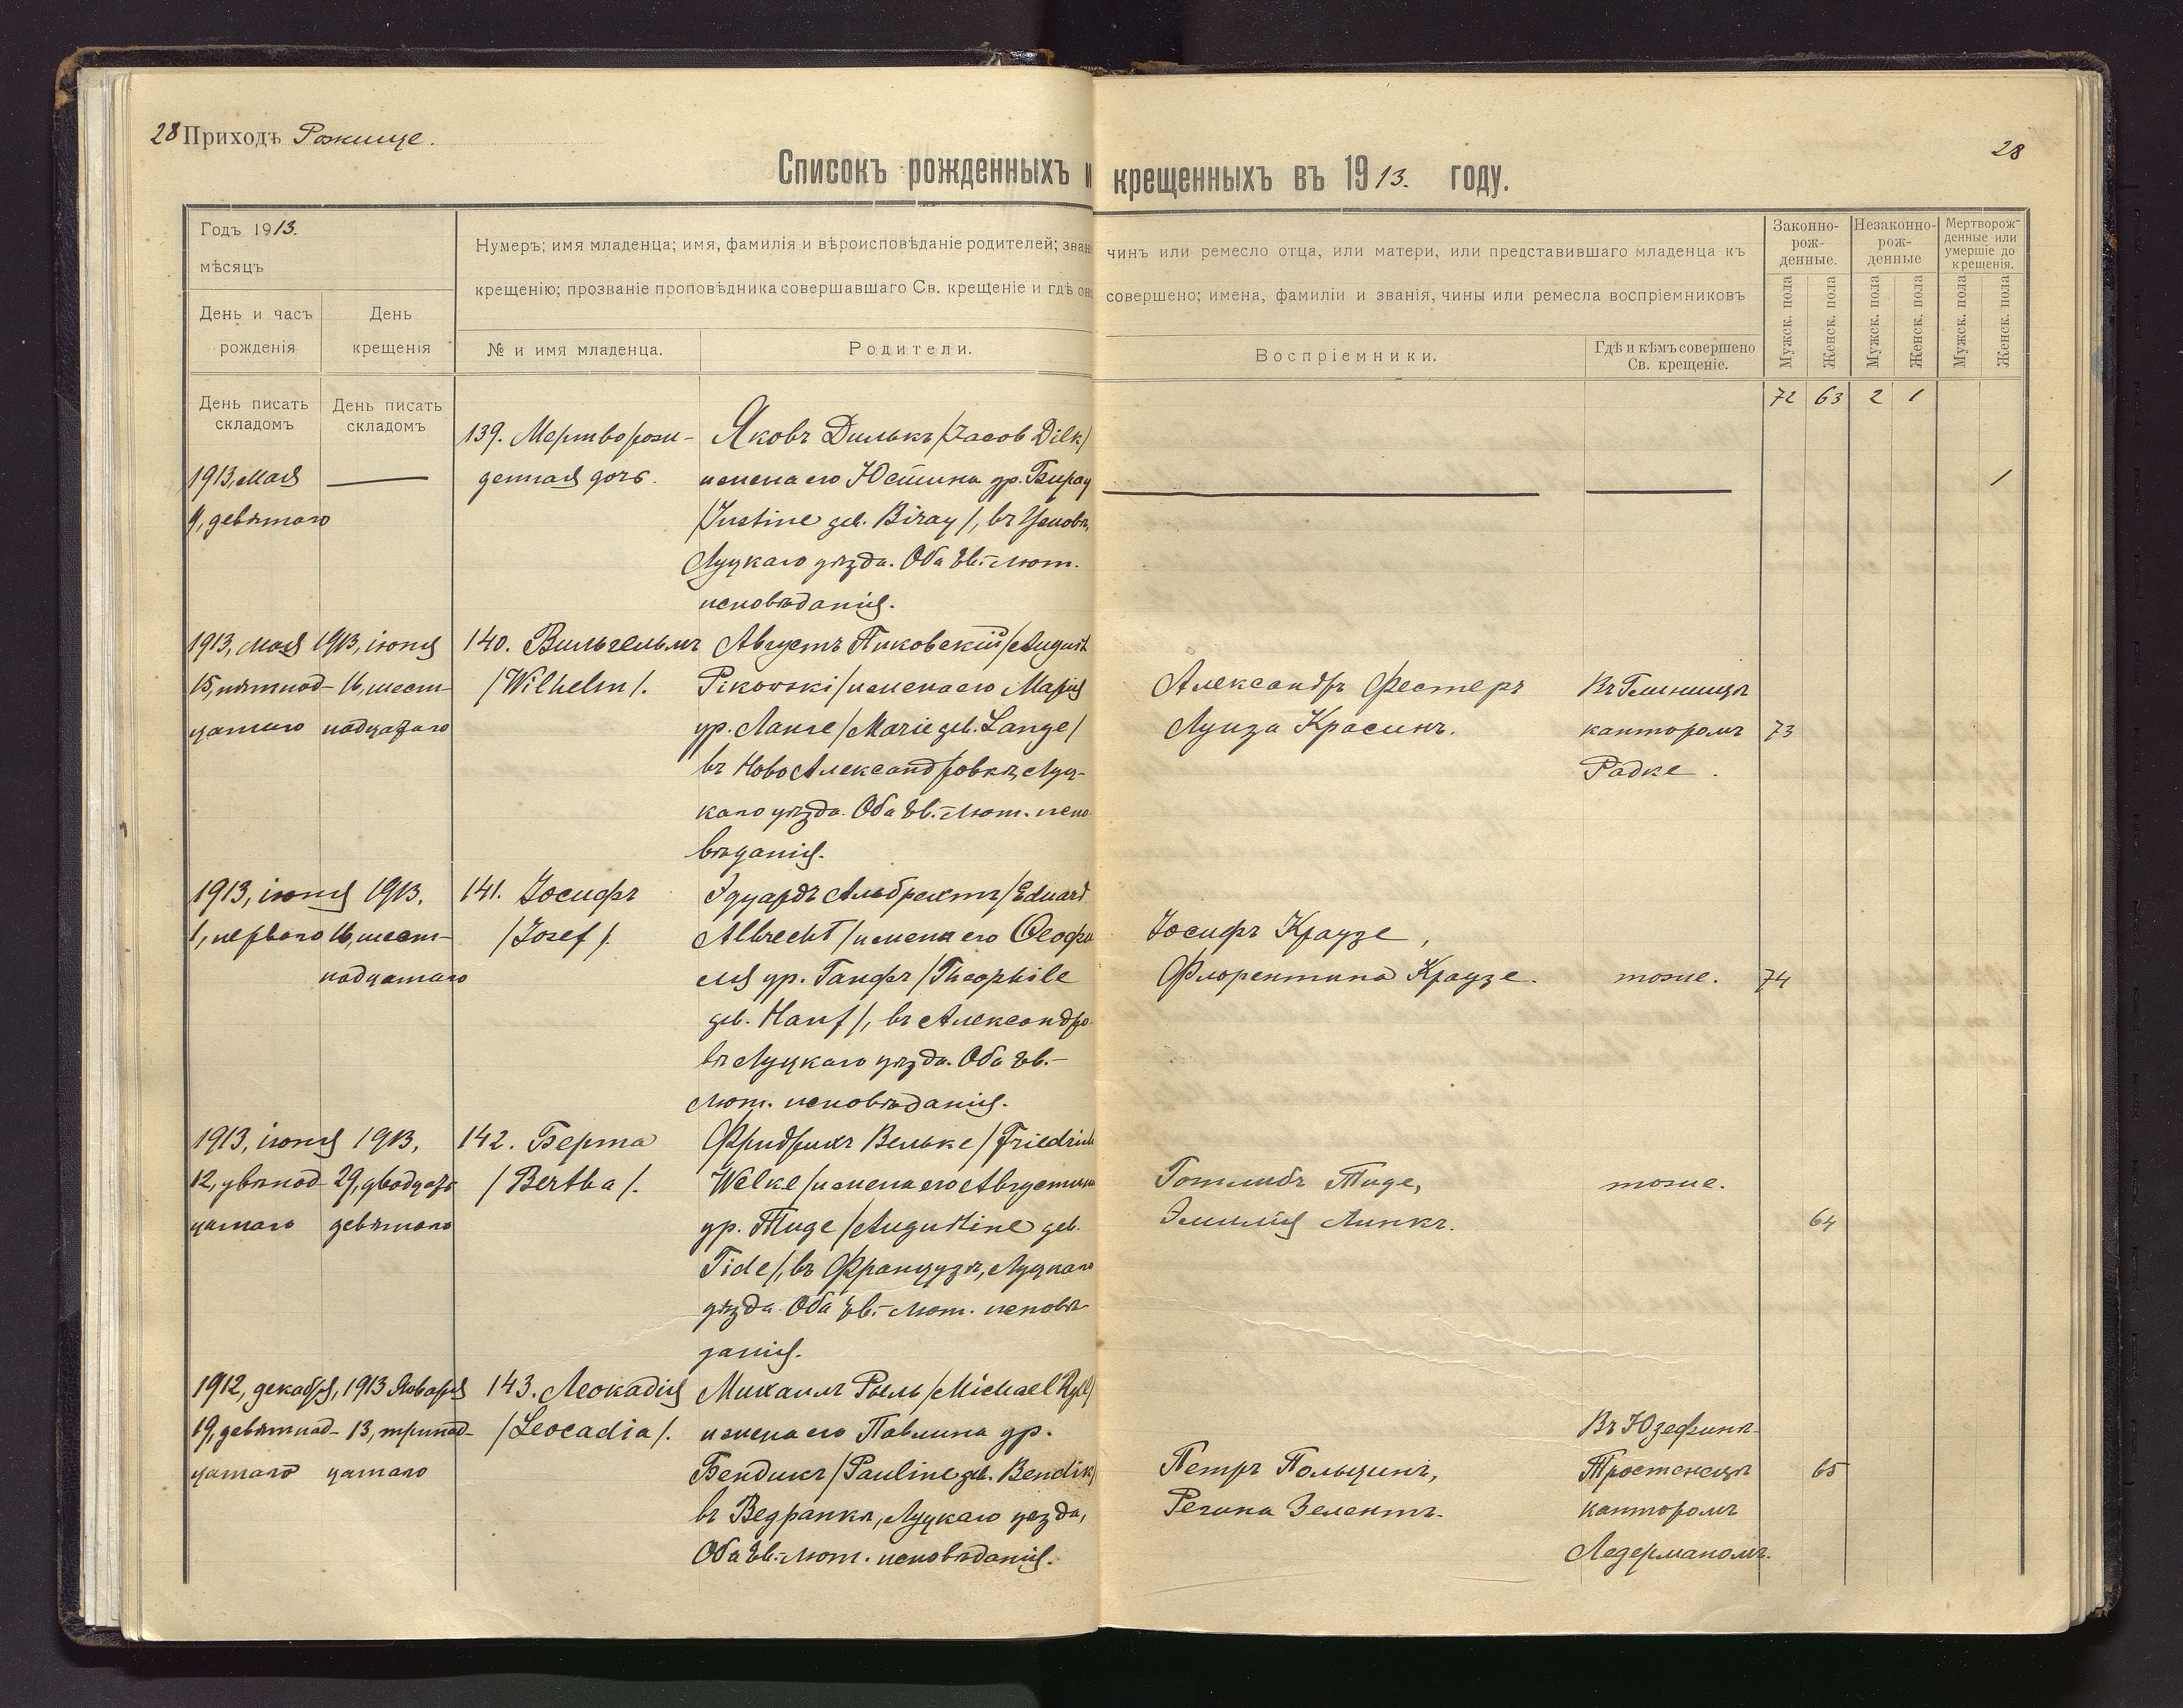 28 Приходъ Рожище.
28
Списокъ рожденныхъ и крещенныхъ въ 1913. году.
Годъ 1913.
мѣсяцъ
День и часъ рожденія
День крещенія
Нумеръ; имя младенца; имя, фамилія и вѣроисповѣданіе родителей; зван чинъ или ремесло отца, или матери, или представившаго младенца къ
крещенію; прозваніе проповѣдника совершавшаго Св. крещеніе и гдѣ он совершено; имена, фамиліи и званія, чины или ремесла воспріемниковъ
№ и имя младенца.
Родители.
Воспріемники.
Гдѣ и кѣмъ совершено
Св. крещеніе.
Законно-
рож-
денные.
Незаконно-
рож-
денные
Мертворож-
денные или
умершіе до
крещенія.
Мужск. пола
Женск. пола
Мужск. пола
Женск. пола
Мужск. пола
Женск. пола
День писать
складомъ
День писать
складомъ
72 63 2 1
1913, мая
9, девятаго
139. Мертворож-
денная дочь.
Яковъ Дилькъ /Jacob Dilk/
и жена его Юстина ур. Бирау
/Justine geb. Biray/, въ
Луцкаго уѣзда. Оба Ев.-Лют.
исповѣданія.
1
1913, мая
15, пятнад-
цатаго
1913, іюня
16, шест-
надцатаго
140. Вильгельмъ
/Wilhelm/.
Августъ Пиковскій /August
Pikowski/ и жена его Марія
ур. Ланге /Marie geb. Lange/
въ НовоАлександровкѣ, Луц-
каго уѣзда. Оба Ев.-Лют. испо-
вѣданія.
Александръ Фестеръ
Луиза Красинъ.
Въ Глинищѣ
канторомъ
Радке.
73
1913, іюня
1, перваго
1913,
16, шест-
надцатаго
141. Іосифъ
/Josef/.
Эдуардъ Альбрехтъ /Eduard
Albrecht/ и жена его Ѳеофи
лія ур. Ганфъ /Theophile
geb. Hanf/, въ Александро-
вѣ Луцкаго уѣзда. Оба Ев.-
Лют. исповѣданія.
Іосифъ Краузе,
Флорентина Краузе.
тоже.
74
1913, іюня
12, двѣнад-
цатаго
1913,
29, двадцать
девятаго
142. Берта
/Bertha/.
Фридрихъ Вельке /Friedrich
Welke/ и жена его Августина
ур. Тиде /Augustine geb.
Tide/, въ Французѣ, Луцкаго
уѣзда Оба Ев.-Лют. исповѣ-
данія.
Готлибъ Тиде,
Эмилія Линкъ.
тоже.
64
1912, декабря,
19, девятнад-
цатаго
1913 Января
13, тринад-
цатаго
143. Леокадія
/Leocadia/.
Михаилъ Рыль /Michael Ryll/
и жена его Павлина ур.
Бендикъ /Pauline geb. Bendik/
въ Ведранкѣ, Луцкаго уѣзда,
Оба Ев.-Лют. исповѣданія.
Петръ Польцинъ,
Регина Зелентъ.
Въ Юзефинѣ-
Тростенецѣ
канторомъ
Ледерманомъ.
65